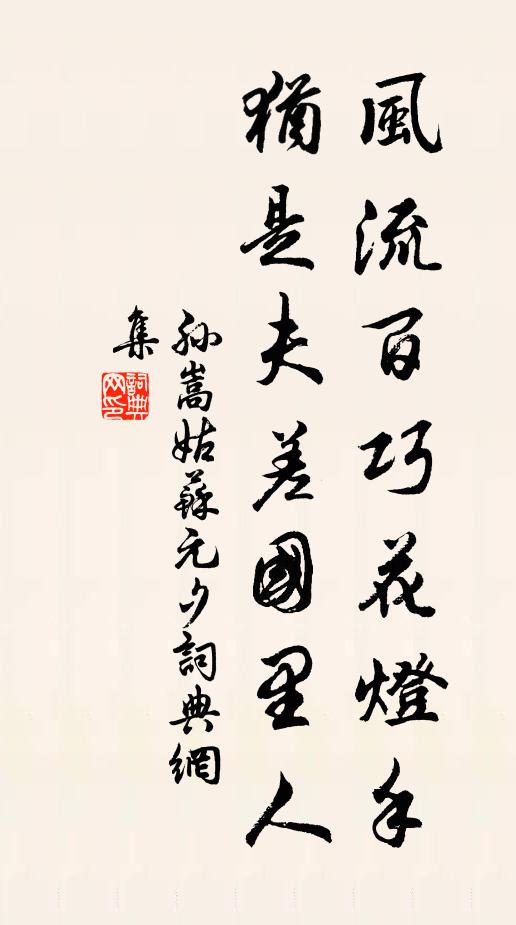 風流百巧花燈手
猶是夫差國里人
孫嵩姑蘇元夕詞典網
集
詞典
网印